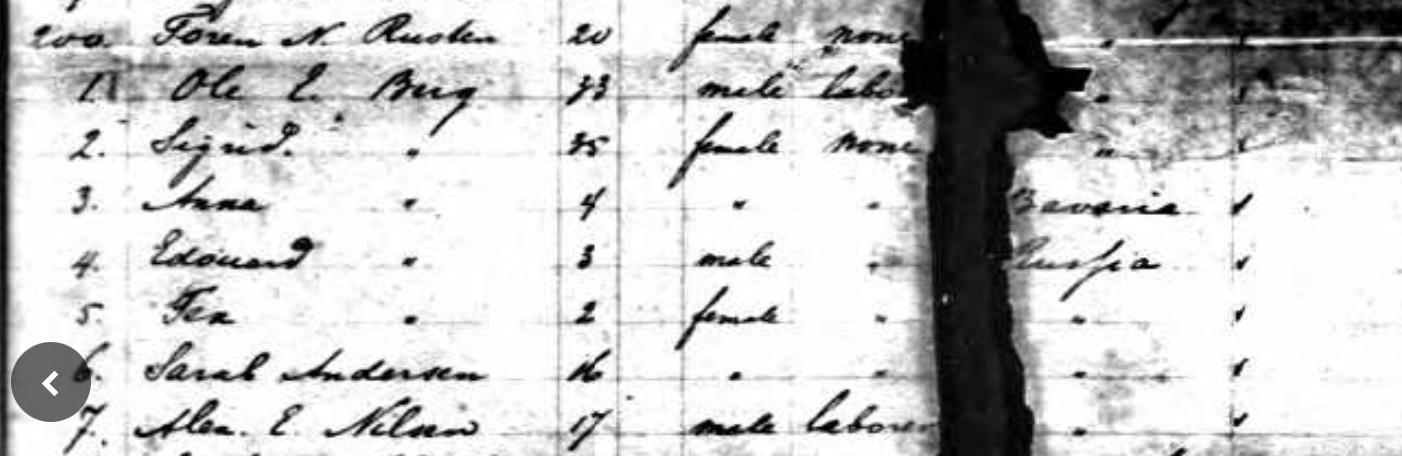 200. Toren N. Rusten 20 female none "
1. Ole E. Berg 33 male labo "
2. Sigrid " 35 female none "
3. Anna " 4 " " Bavaria
4. Edouard " 3 male " Russia
5. " 2 female " "
6. Sarah Andersen 16 " " "
7. Alex. E. Nilsen 17 male laborer "